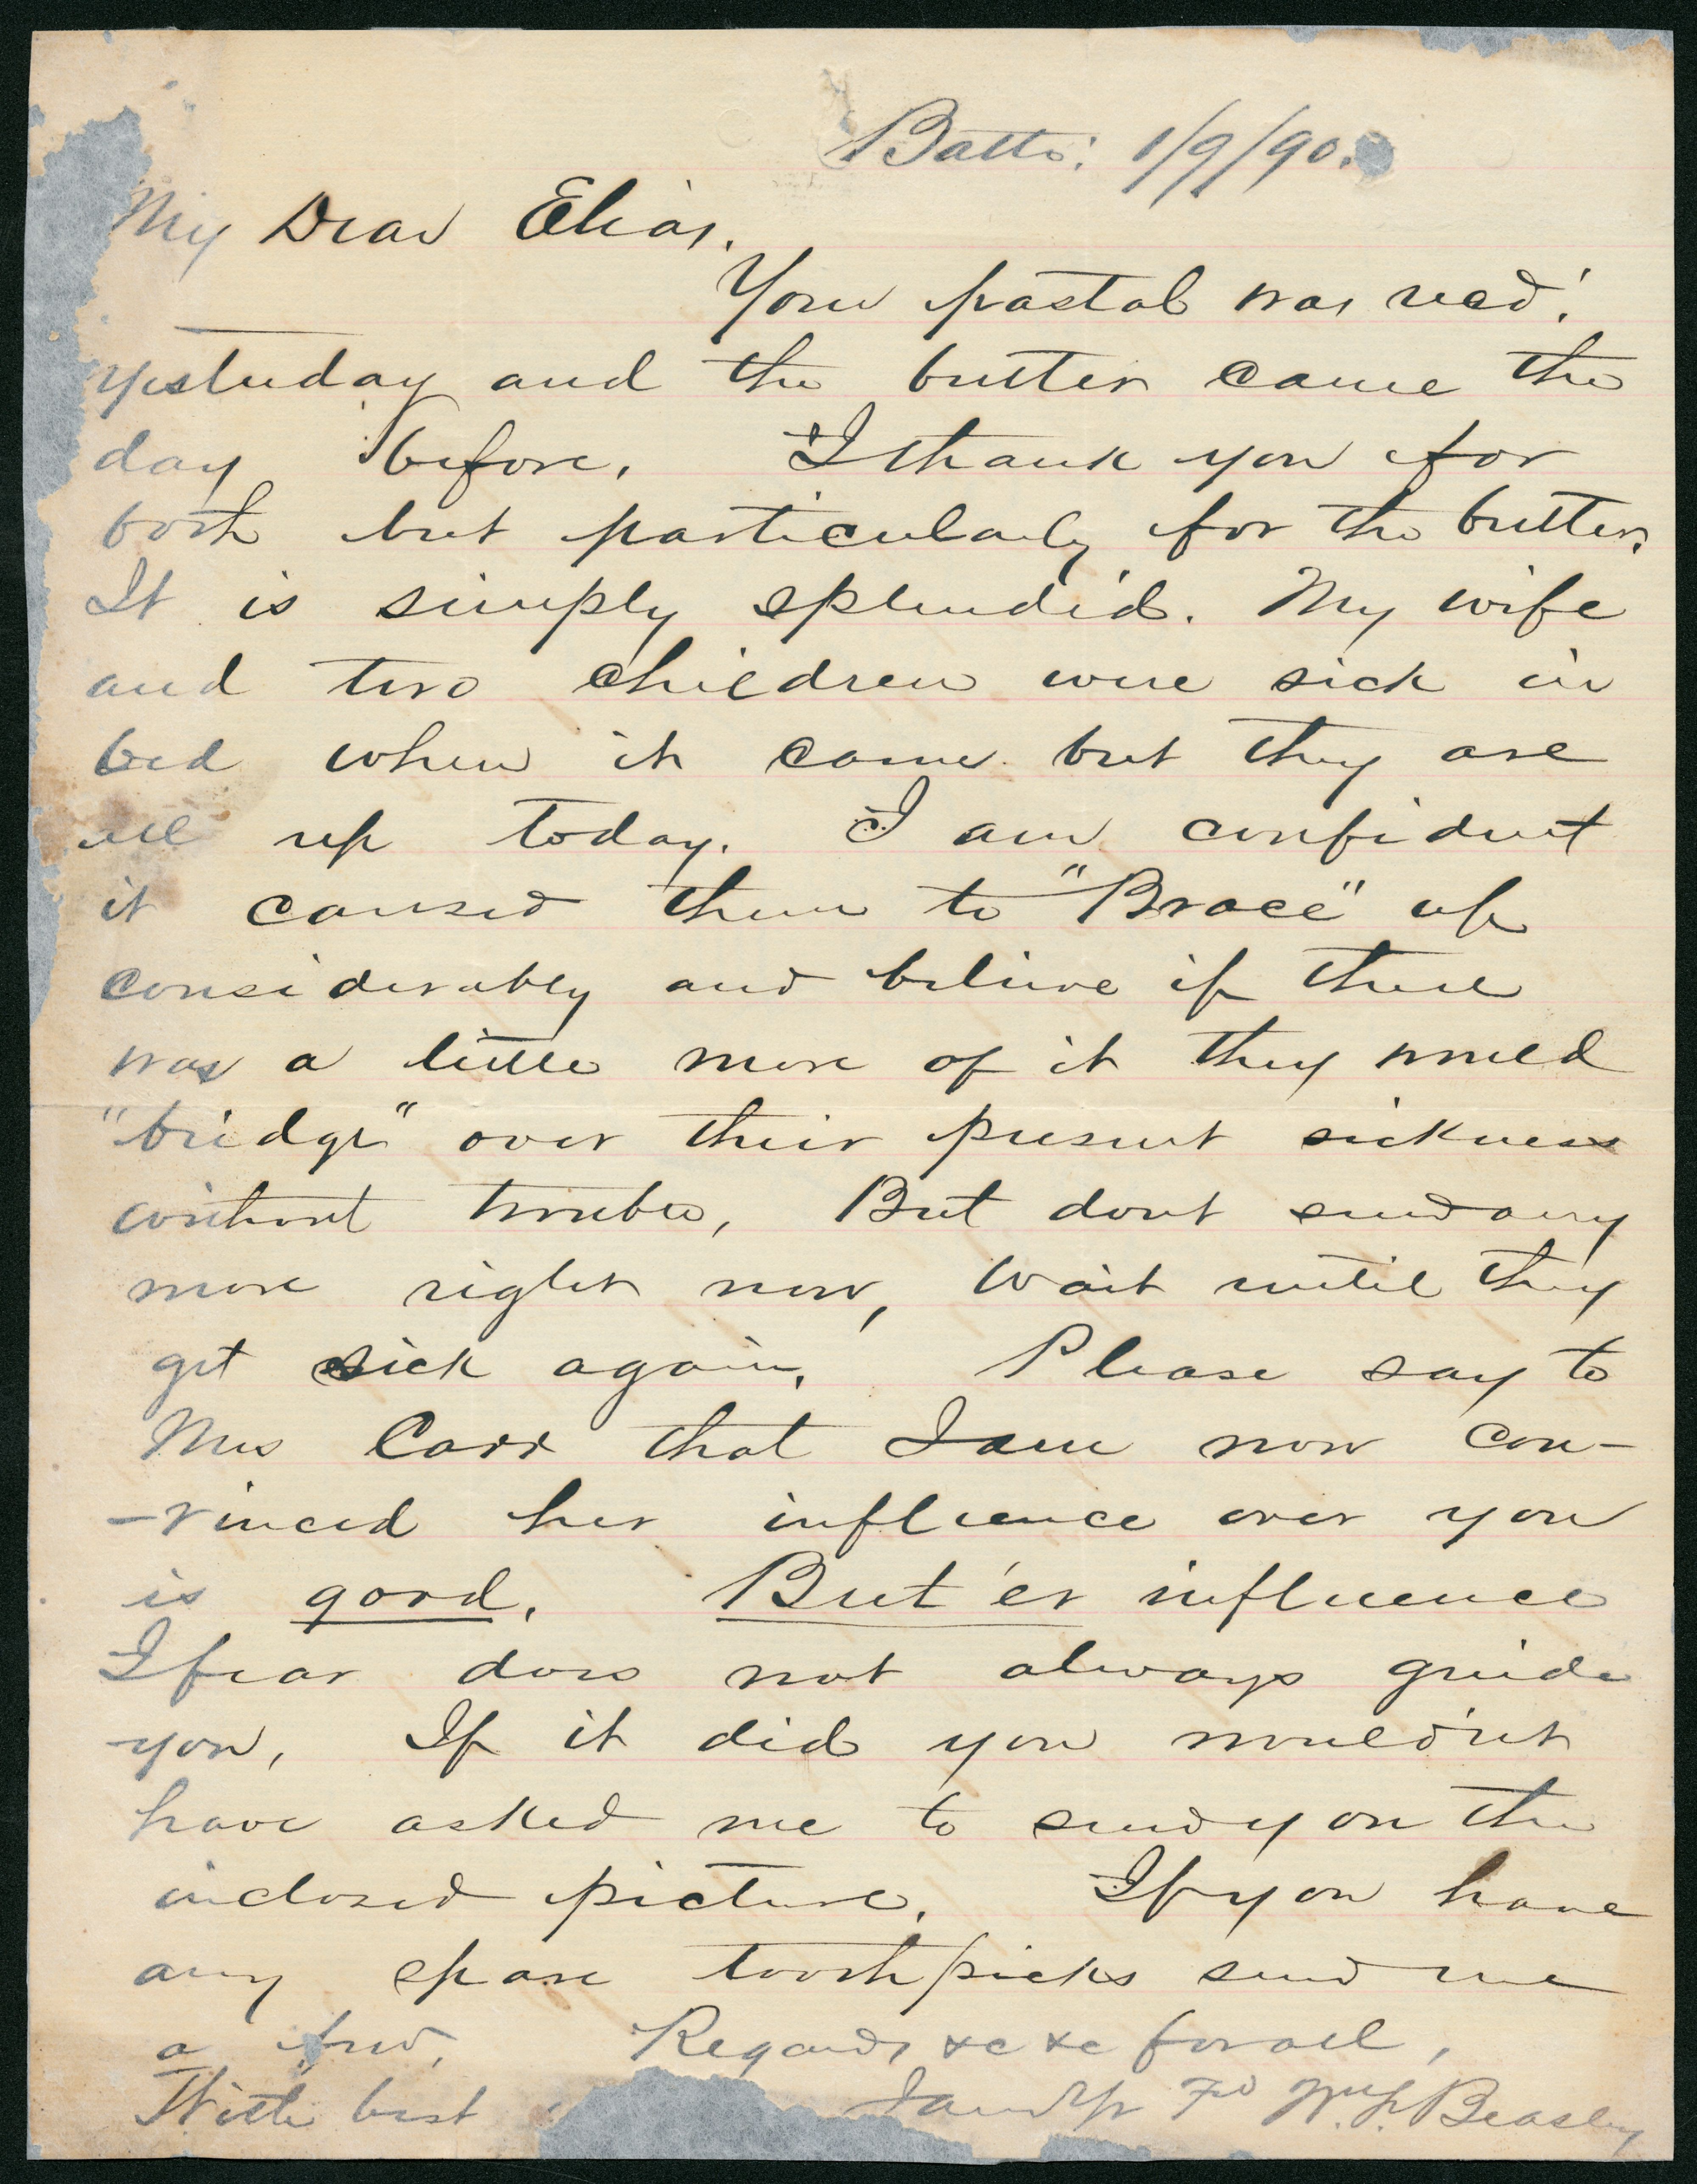 Balto: 1/9/90.
My Dear Elias.
Your postal was recd.'
yesterday and the butter came the
day before. I thank you for
both but particularly for the butter.
It is simply splendid. My wife
and two children were sick in
bed when it came but they are
all up today. I am confident
it caused them to "Brace" up
considerably and believe if there
was a little more of it they would
"bridge" over their present sickness
without trouble, But dont send any
more right now, Wait until they
get sick again. Please say to
Mrs Carr that I am now con-
-vinced her influence over you
is good. But'er influence
I fear does not always guide
you. If it did you would'nt
have asked me to send you the
inclosed picture. If you have
any spare toothpicks send me
a few. Regards &c &c for all,
With best I am Yr Fd Beasley